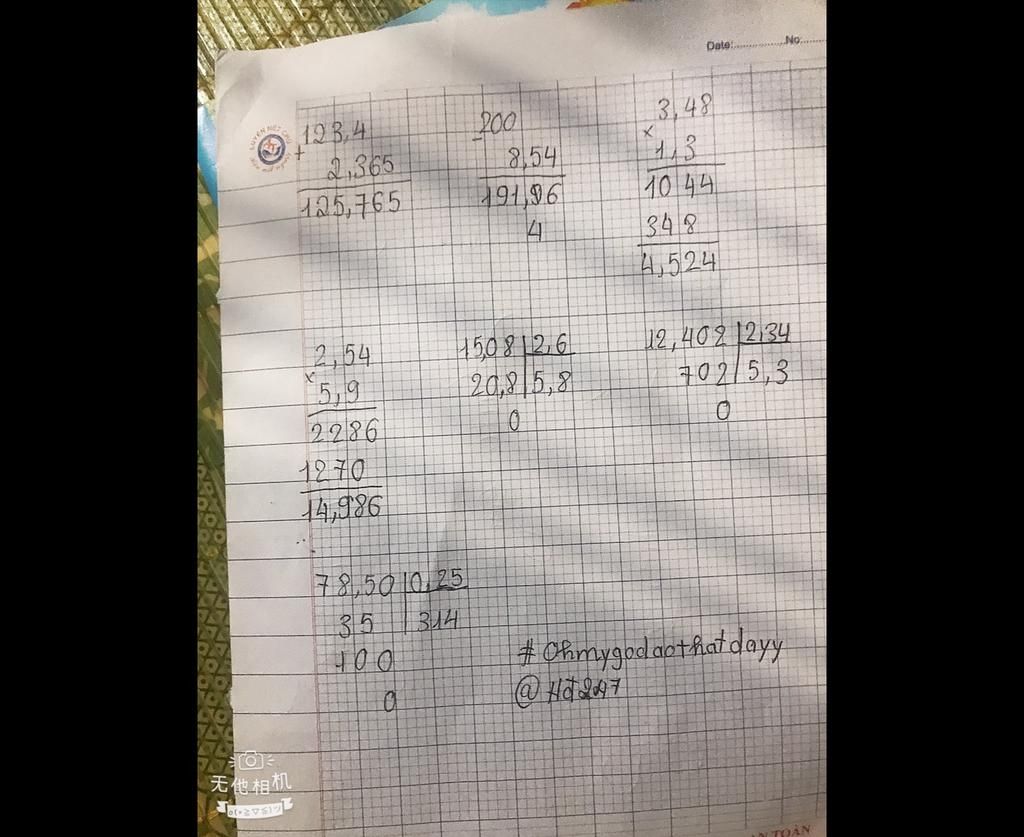 Date:...............No:......
123,4
+
2,365
125,765
200
-
8,54
191,96
4
3,48
×
1,3
1044
348
4,524
2,54
×
5,9
2286
1270
14,986
15,08 2,6
20,8 5,8
0
12,402 2,34
702 5,3
0
78,50 0,25
35 314
100
0
# Ohmygodaothatdayy
无他相机